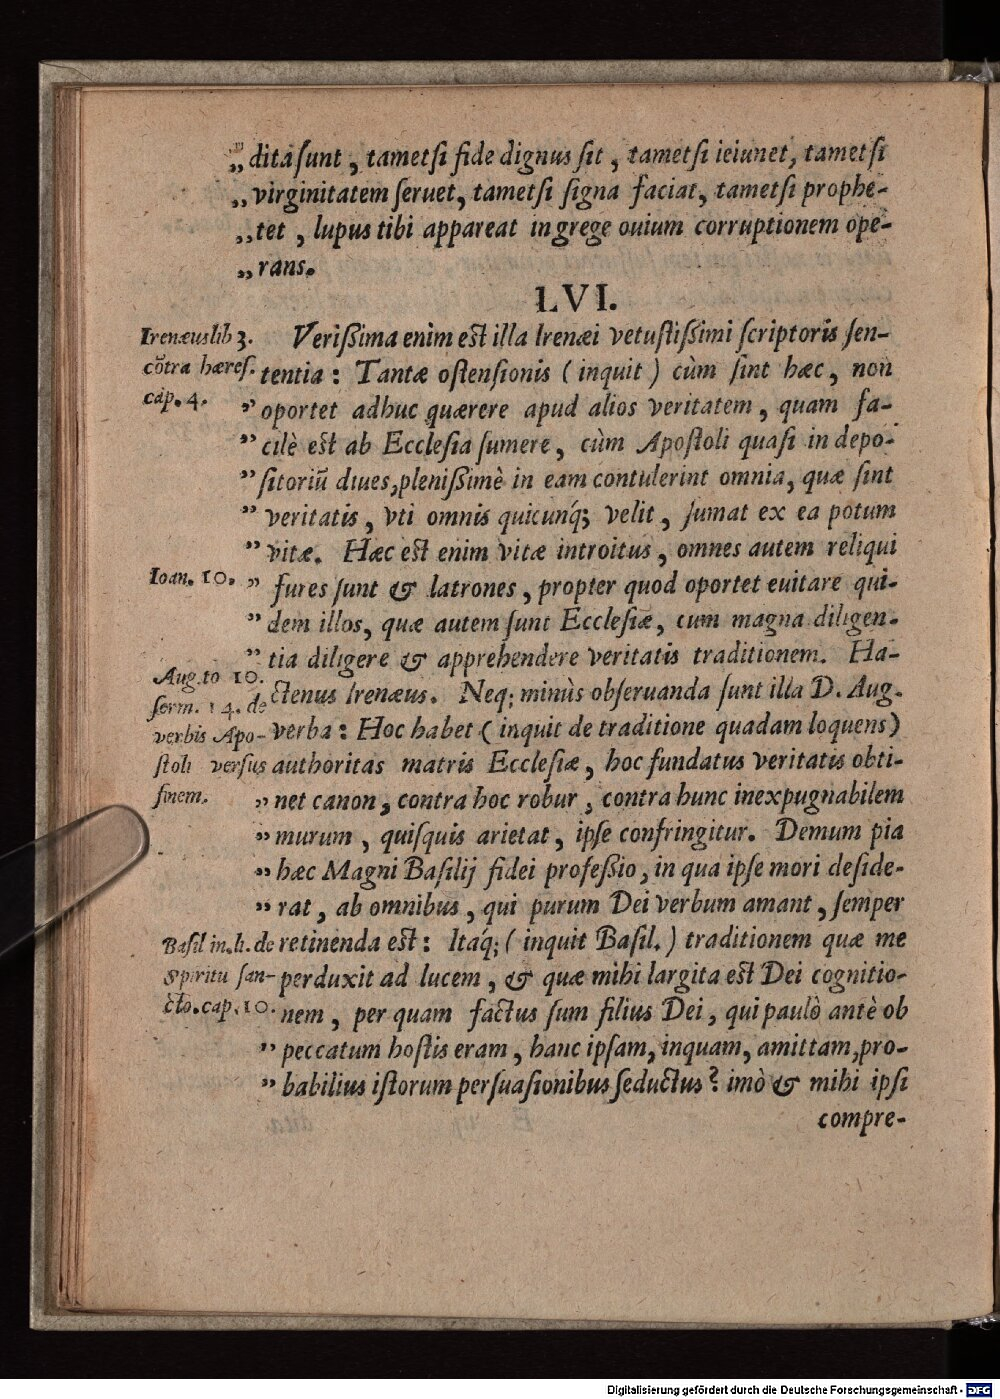 „ dita ſunt, tametſi fide dignus ſit, tametſi ieiunet, tametſi
„ virginitatem ſeruet, tametſi ſigna faciat, tametſi prophe-
„ tet, lupus tibi appareat in grege ouium corruptionem ope-
„ rans.
LVI.
Irenæus lib 3.
cõtra hæreſ.
cap. 4.
Verißima enim eſt illa Irenæi vetuſtißimi ſcriptoris ſen-
tentia: Tantæ oſtenſionis (inquit) cùm ſint hæc, non
” oportet adhuc quærere apud alios veritatem, quam fa-
” cilè eſt ab Eccleſia ſumere, cùm Apoſtoli quaſi in depo-
” ſitoriũ diues, plenißimè in eam contulerint omnia, quæ ſint
” veritatis, vti omnis quicunq́; velit, ſumat ex ea potum
” vitæ. Hæc eſt enim vitæ introitus, omnes autem reliqui
Ioan. 10.
” fures ſunt & latrones, propter quod oportet euitare qui-
” dem illos, quæ autem ſunt Eccleſiæ, cum magna diligen-
” tia diligere & apprehendere veritatis traditionem. Ha-
Aug. to 10.
ſerm. 14. de
verbis Apo-
ſtoli verſus
finem.
ctenus Irenæus. Neq; minùs obſeruanda ſunt illa D. Aug.
verba: Hoc habet (inquit de traditione quadam loquens)
authoritas matris Eccleſiæ, hoc fundatus veritatis obti-
” net canon, contra hoc robur, contra hunc inexpugnabilem
” murum, quiſquis arietat, ipſe confringitur. Demum pia
” hæc Magni Baſilij fidei profeßio, in qua ipſe mori deſide-
” rat, ab omnibus, qui purum Dei verbum amant, ſemper
Baſil in. li. de
Spiritu ſan-
cto. cap. 10.
retinenda eſt: Itaq́; (inquit Baſil.) traditionem quæ me
perduxit ad lucem, & quæ mihi largita eſt Dei cognitio-
nem, per quam factus ſum filius Dei, qui paulò antè ob
” peccatum hoſtis eram, hanc ipſam, inquam, amittam, pro-
” babilius iſtorum perſuaſionibus ſeductus? imò & mihi ipſi
compre-
Digitalisierung gefördert durch die Deutsche Forschungsgemeinschaft - DFG